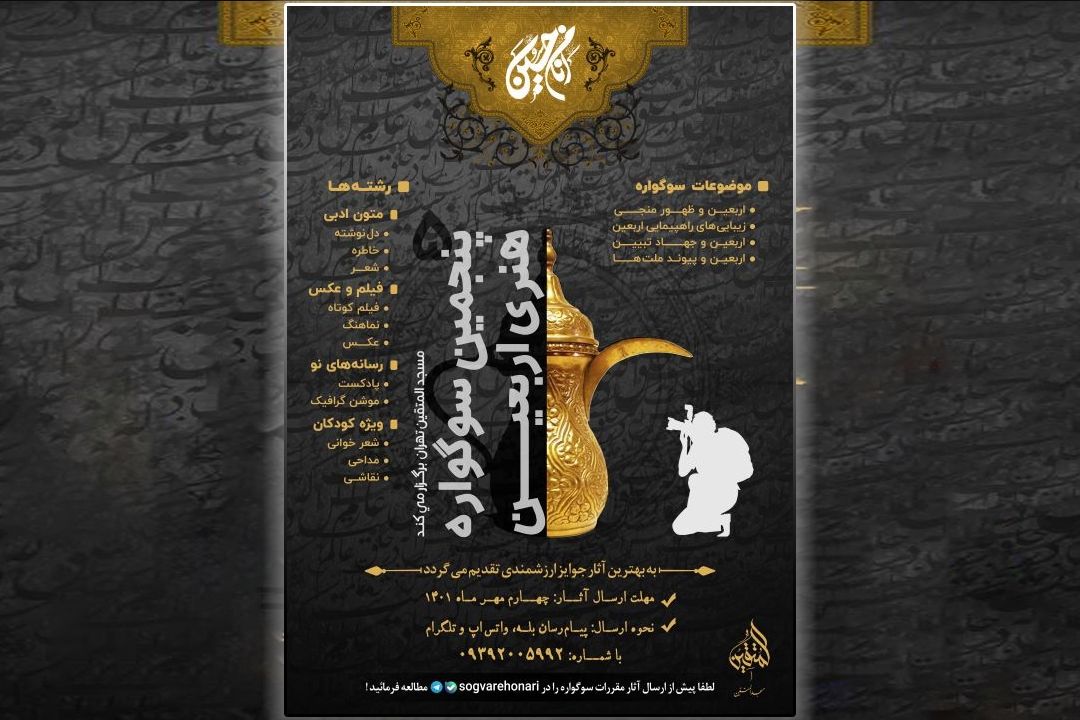 موضوعات سوگواره
اربعین و ظهور منجی
زیبایی‌های راهپیمایی اربعین
اربعین و جهاد تبیین
اربعین و پیوند ملت‌ها
رشته‌ها
متون ادبی
دل‌نوشته
خاطره
شعر
فیلم و عکس
فیلم کوتاه
نماهنگ
عکس
رسانه‌های نو
پادکست
موشن گرافیک
ویژه کودکان
شعر خوانی
مداحی
نقاشی
پنجمین سوگواره
هنری اربعین
مسجد المتقین تهران برگزار می کند
به بهترین آثار جوایز ارزشمندی تقدیم می گردد
مهلت ارسال آثار: چهارم مهر ماه ۱۴۰۱
نحوه ارسال: پیام‌رسان بله، واتس‌اپ و تلگرام
با شماره: ۰۹۳۹۲۰۰۵۹۹۲
لطفا پیش از ارسال آثار مقررات سوگواره را در sogvarehonari مطالعه فرمائید!
المتقین